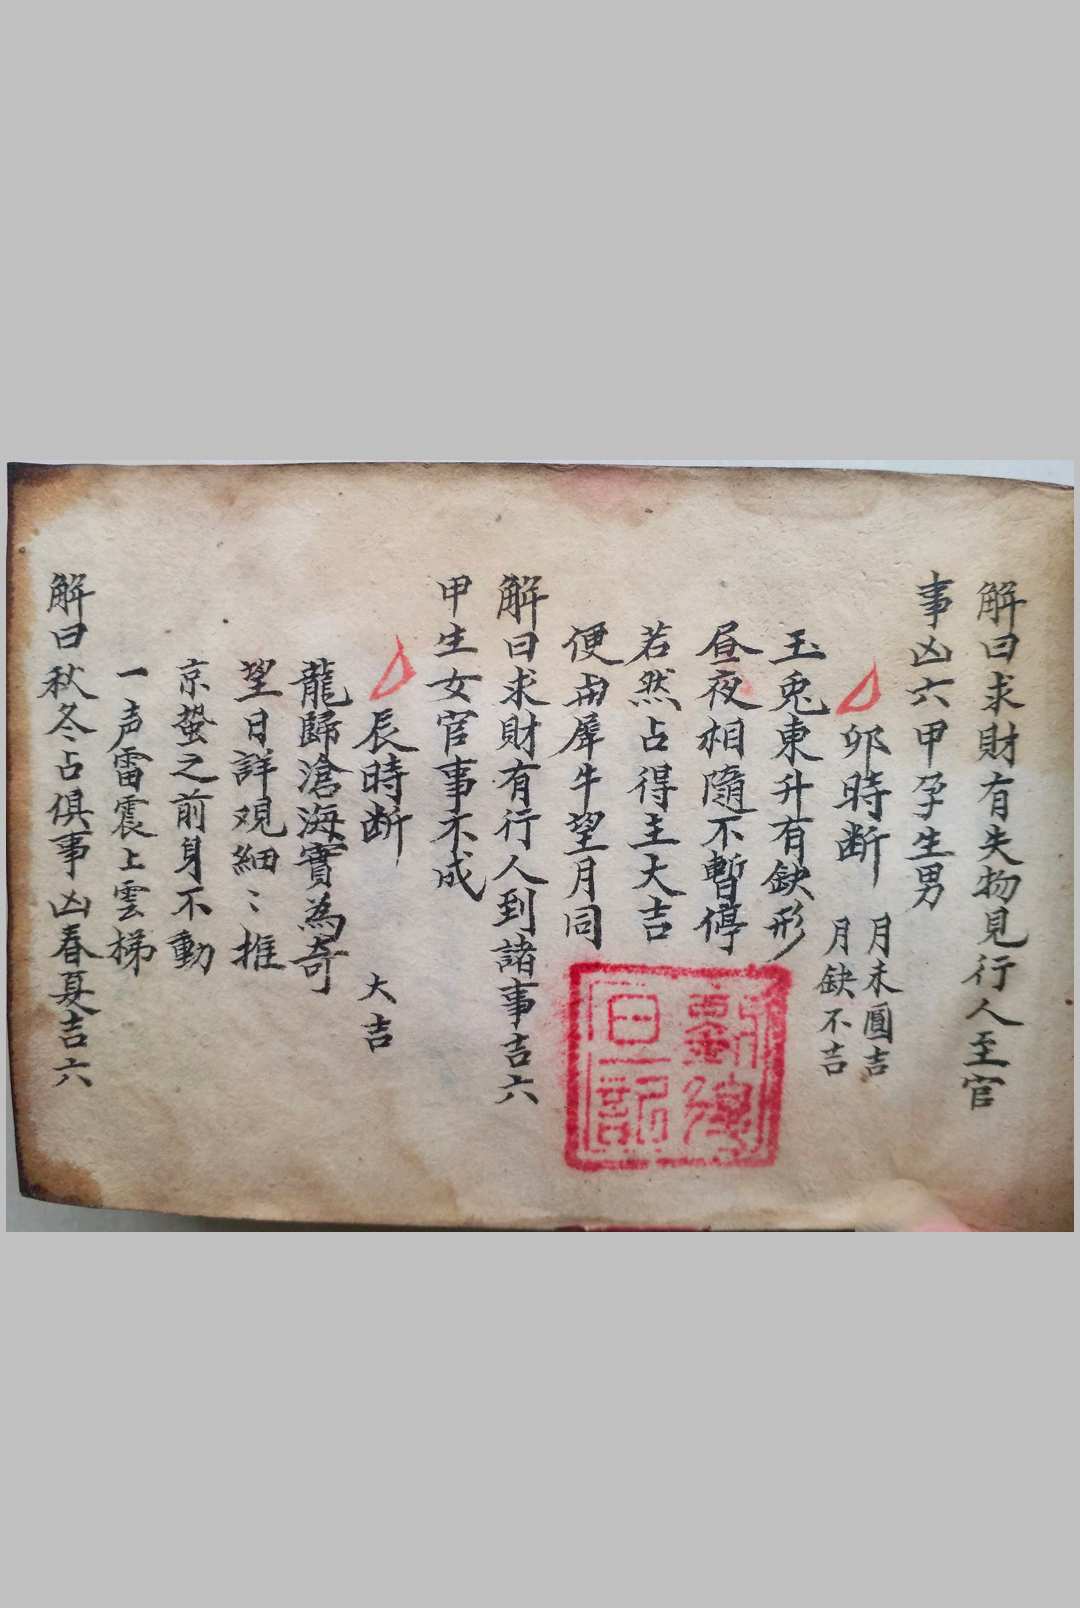 解曰求財有失物見行人至官
事凶六甲孕生男
卯時断 月未圓吉
月缺不吉
玉兎東升有缺形
昼夜相隨不暫停
若然占得主大吉
便由犀牛望月同
解曰求財有行人到諸事吉六
甲生女官事不成
辰時断 大吉
龍歸滄海實為奇
望日詳观細〻推
京蟄之前身不動
一声雷震上雲梯
解曰秋冬占俱事凶春夏吉六
劉
日記